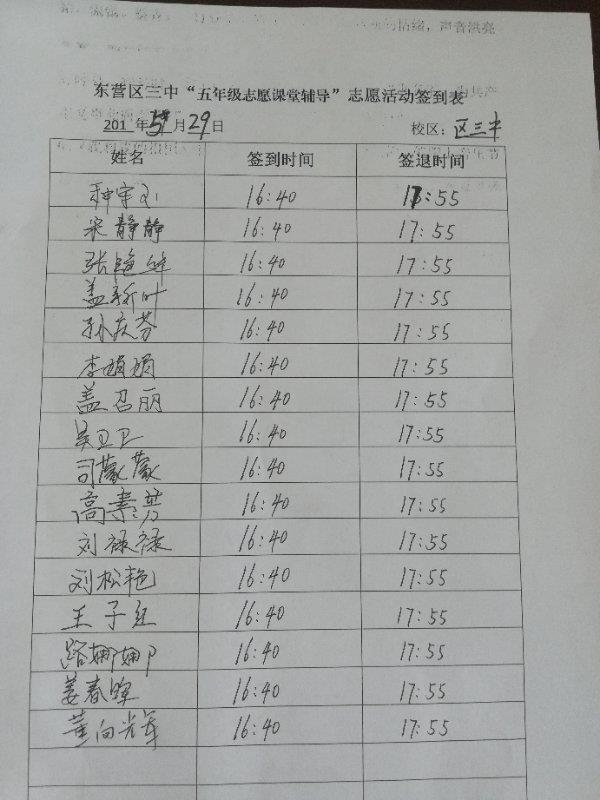 东营区三中“五年级志愿课堂辅导”志愿活动签到表
201 年5月29日 校区：区三中
姓名 签到时间 签退时间
16:40 17:55
宋静静 16:40 17:55
张艳 16:40 17:55
盖新叶 16:40 17:55
孙庆芬 16:40 17:55
李娟娟 16:40 17:55
盖召丽 16:40 17:55
吴卫卫 16:40 17:55
司蒙蒙 16:40 17:55
高素芳 16:40 17:55
刘禄禄 16:40 17:55
刘松艳 16:40 17:55
王子红 16:40 17:55
路娜娜 16:40 17:55
姜春晖 16:40 17:55
董向光军 16:40 17:55